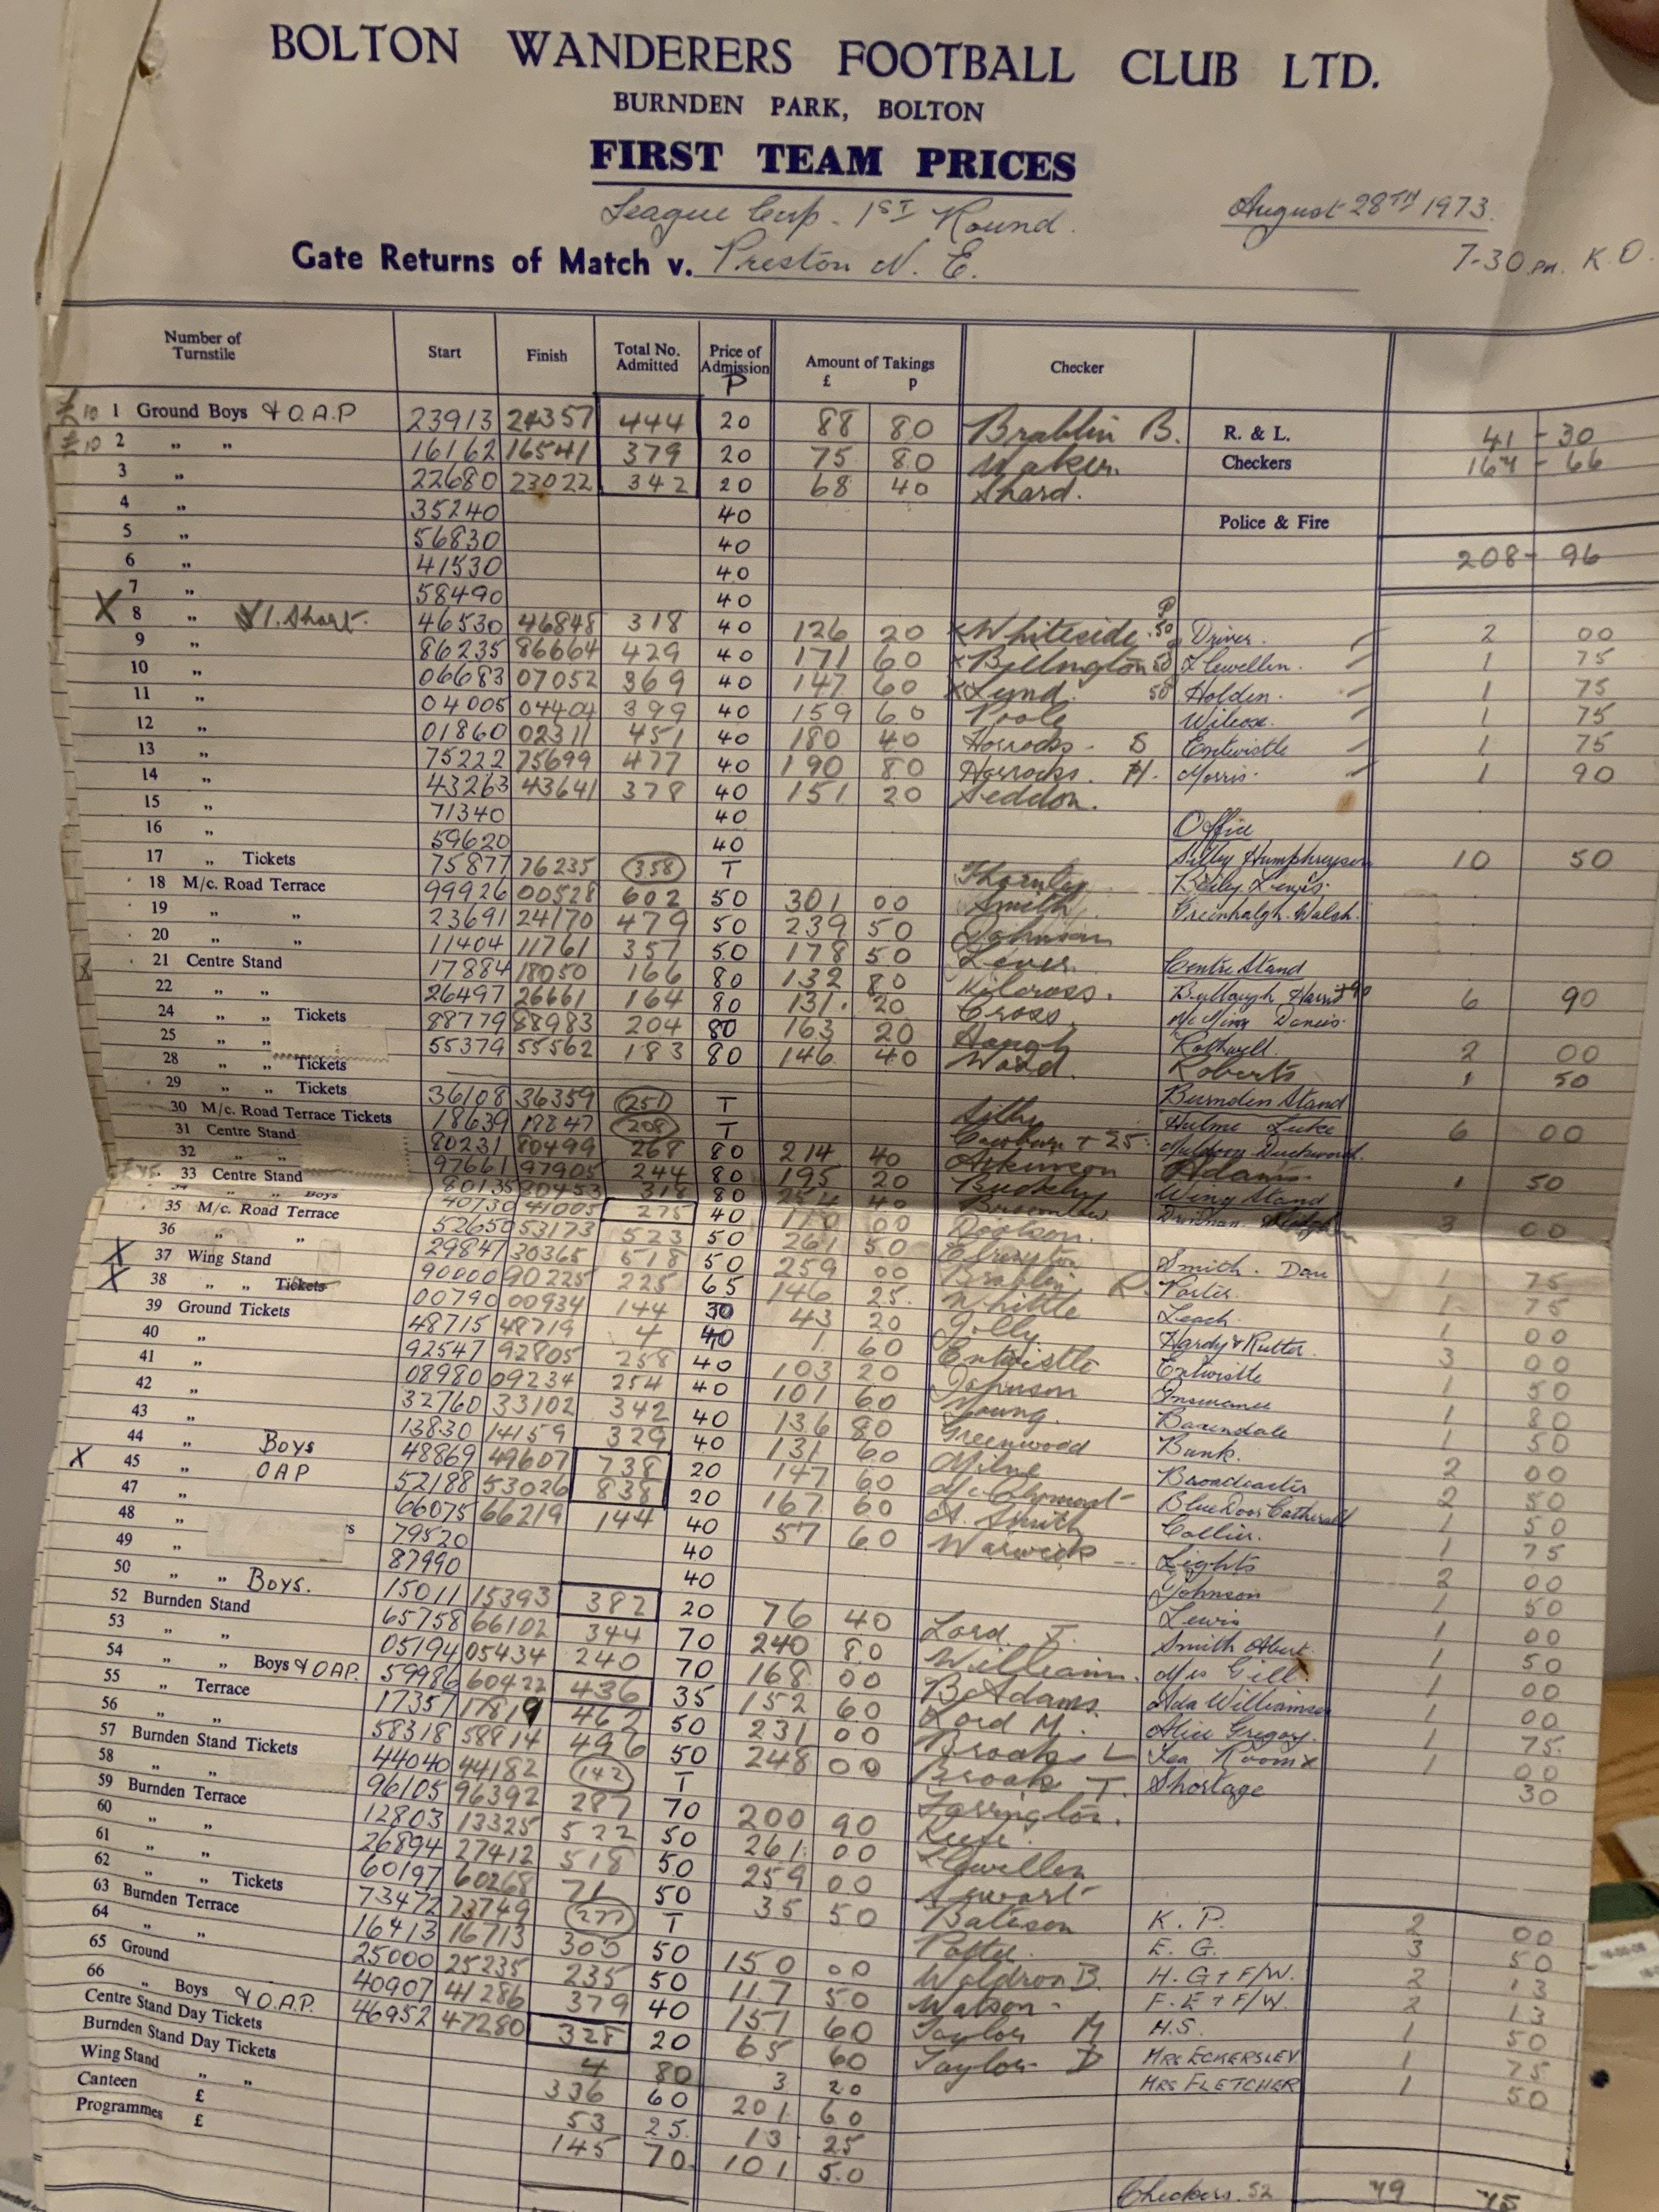 BOLTON WANDERERS FOOTBALL CLUB LTD.
BURNDEN PARK, BOLTON
FIRST TEAM PRICES
League Cup - 1ST Round. August 28TH 1973.
Gate Returns of Match v. Preston N. E. 7-30 pm. K.O.
Number of Turnstile Start Finish Total No. Admitted Price of Admission P Amount of Takings £ p Checker
£10 1 Ground Boys & O.A.P 23913 24357 444 20 88 80 Brablin B. R. & L. 41 - 30
£10 2 „ „ 16162 16541 379 20 75 80 Checkers 167 - 66
3 „ 22680 23022 342 20 68 40 Shard.
4 „ 35240 40 Police & Fire
5 „ 56830 40 208 - 96
6 „ 41530 40
7 „ 58490 40
X 8 „ 1. Short. 46530 46848 318 40 126 20 x Whiteside 50 Driver. 2 00
9 „ 86235 86664 429 40 171 60 x Billington 50 Llewellin. 1 75
10 „ 06683 07052 369 40 147 60 x Lund. 50 Holden. 1 75
11 „ 04005 04404 399 40 159 60 Poole Wilcox. 1 75
12 „ 01860 02311 451 40 180 40 Horrocks - S Entwistle 1 75
13 „ 75222 75699 477 40 190 80 Horrocks. H. Morris. 1 90
14 „ 43263 43641 378 40 151 20 Seddon.
15 „ 71340 40 Office
16 „ 59620 40 10 50
17 „ Tickets 75877 76235 358 T Thornley
18 M/c. Road Terrace 99926 00528 602 50 301 00 Smith Greenhalgh. Walsh.
19 „ „ 23691 24170 479 50 239 50 Johnson
20 „ „ 11404 11761 357 50 178 50 Lever. Centre Stand
21 Centre Stand 17884 18050 166 80 132 80 Kilcross. 6 90
22 „ „ 26497 26661 164 80 131. 20 Cross
24 „ „ Tickets 88779 88983 204 80 163 20 Hough Rothwell. 2 00
25 „ „ 55379 55562 183 80 146 40 Wood. Roberts 1 50
28 „ „ Tickets Burnden Stand
29 „ „ Tickets 36108 36359 251 T Hulme Luke 6 00
30 M/c. Road Terrace Tickets 18639 18847 208 T
31 Centre Stand 80231 80499 268 80 214 40 Atkinson Adams 1 50
32 „ „ 97661 97905 244 80 195 20 Buckley Wing Stand
33 Centre Stand 80135 80453 318 80 254 40 3 00
„ „ „ Boys 40730 41005 275 40 110 00 Dootson.
35 M/c. Road Terrace 52650 53173 523 50 261 50 Smith. Dan 1 75
36 „ „ 29847 30365 518 50 259 00 Brablin R. Porter. 1 75
X 37 Wing Stand 90000 90225 225 65 146 25 Whittle Leach. 1 00
X 38 „ „ Tickets 00790 00934 144 30 43 20 Jolly Hardy & Rutter. 3 00
39 Ground Tickets 48715 48719 4 40 1. 60 Entwistle Entwistle 1 50
40 „ 92547 92805 258 40 103 20 Johnson Insurance 1 80
41 „ 08980 09234 254 40 101 60 Young. Baxendale 1 50
42 „ 32760 33102 342 40 136 80 Greenwood Bank. 2 00
43 „ 13830 14159 329 40 131 60 Milne Broadcaster 2 50
44 „ Boys 48869 49607 738 20 147 60 Blue Door Catherall 1 50
X 45 „ OAP 52188 53026 838 20 167. 60 A. Smith Collier. 1 75
47 „ 66075 66219 144 40 57 60 Warwick Lights 2 00
48 „ 's 79520 40 Johnson 1 50
49 „ 87990 40 Lewis 1 00
50 „ „ Boys. 15011 15393 382 20 76 40 Lord. T. Smith Albert. 1 50
52 Burnden Stand 65758 66102 344 70 240 80 William. Mrs Gill. 1 00
53 „ „ 05194 05434 240 70 168 00 B. Adams. Ada Williamson 1 00
54 „ „ Boys & OAP. 59986 60422 436 35 152 60 Lord M. Alice Gregory. 1 75.
55 „ Terrace 17357 17819 462 50 231 00 Brooks L Tea Room x 1 00
56 „ „ 58318 58814 496 50 248 00 Brook T. Shortage 30
57 Burnden Stand Tickets 44040 44182 142 T Farrington.
58 „ „ 96105 96392 287 70 200 90
59 Burnden Terrace 12803 13325 522 50 261. 00 Llewillen
60 „ „ 26894 27412 518 50 259 00 Stewart
61 „ „ 60197 60268 71 50 35 50 Bateson K. P. 2 00
62 „ „ Tickets 73472 73749 277 T E. G. 3 50
63 Burnden Terrace 16413 16713 300 50 150 00 Waldron B. H. G + F/W. 2 13
64 „ „ 25000 25235 235 50 117 50 Watson F. E + F/W. 2 13
65 Ground 40907 41286 379 40 151 60 Taylor M H.S. 1 50
66 „ Boys & O.A.P. 46952 47280 328 20 65 60 Taylor D MRS ECKERSLEY 1 75
Centre Stand Day Tickets 4 80 3 20 MRS FLETCHER 1 50
Burnden Stand Day Tickets 336 60 201 60
Wing Stand „ „ 53 25. 13 25
Canteen £ 145 70. 101 50
Programmes £
Checkers. 52 79 75